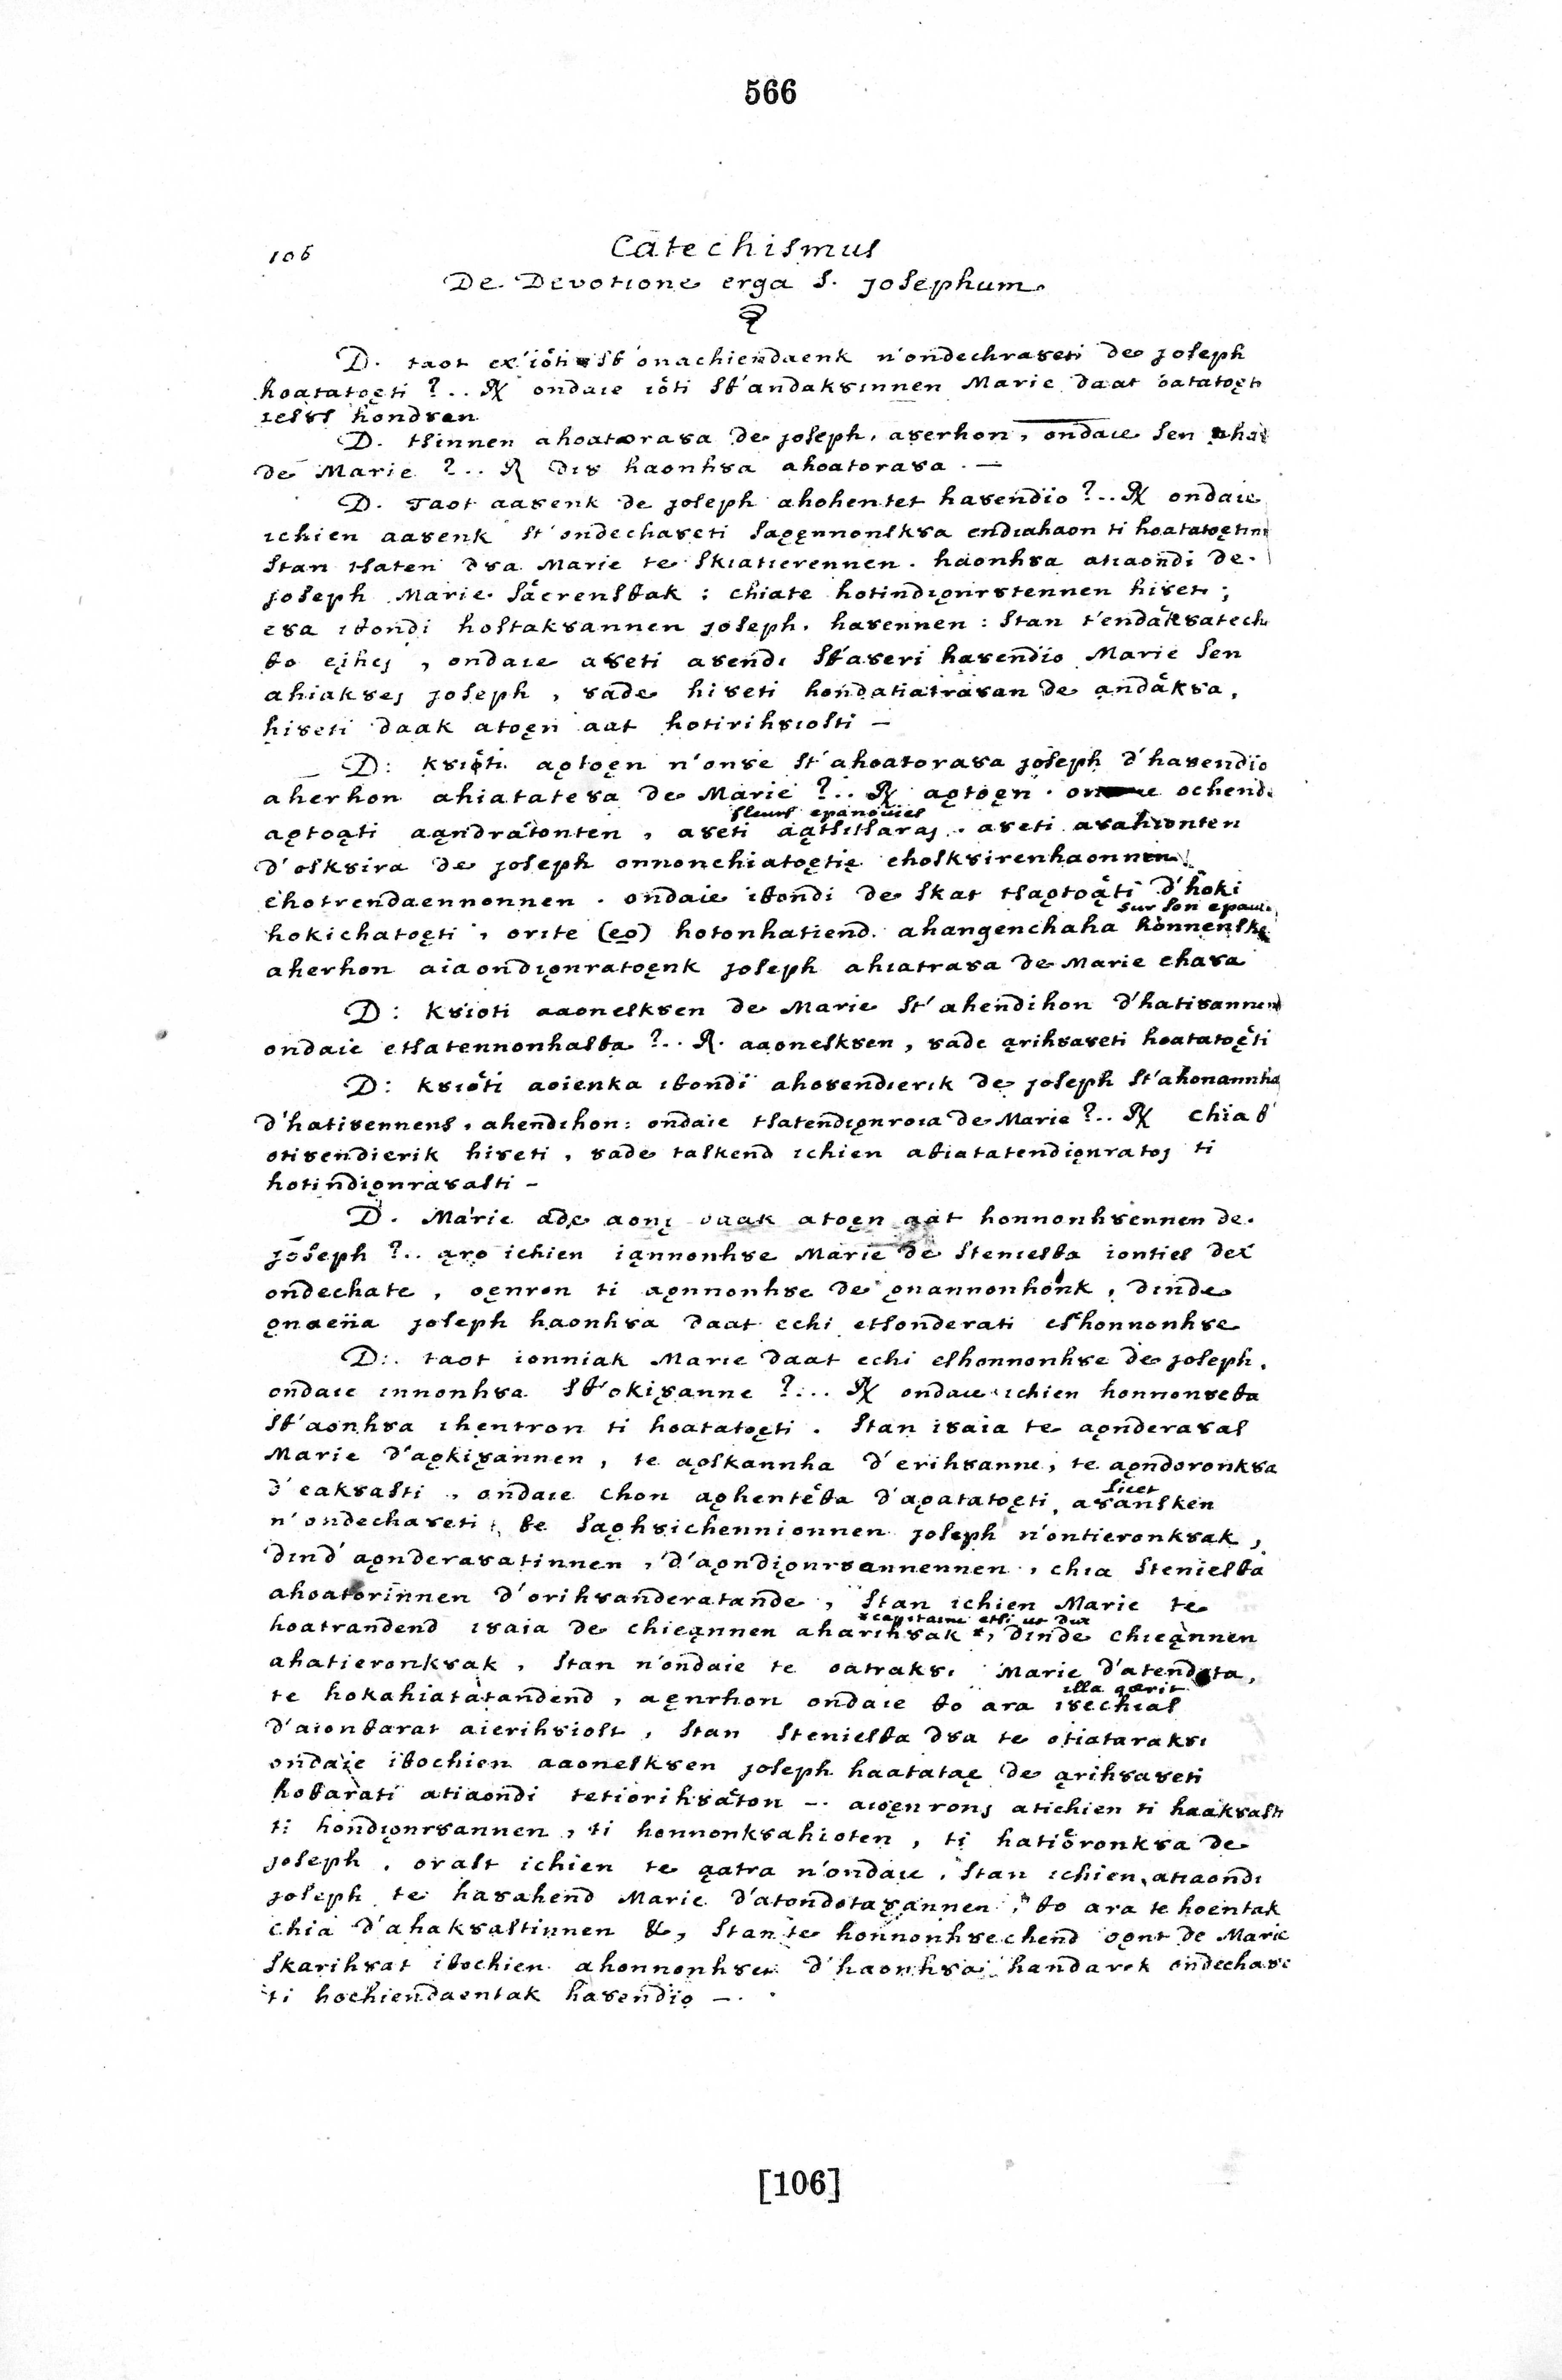 566
106
Catechismus
De Devotione erga S. Josephum
D. taot ex' ioti st' onachiendaenk n'ondechra8eti de Joseph
hoatatoęti ? .. ℟ ondaie ioti st' andak8innen Marie daat oatatoęti
ies8s hond8en
D. tsinnen ahoatora8a de Joseph, a8erhon, ondaie sen
de Marie ? .. ℟ di8 haonh8a ahoatora8a . —
D. Taot aa8enk de Joseph ahohentet ha8endio ? .. ℟ ondaie
ichien aa8enk st' ondecha8eti saǫęnnonsk8a endiahaon ti hoatatoętinn
stan tsaten d8a Marie te skiatierennen . haonh8a atiaondi de
Joseph Marie saerensθak : chiate hotindiǫnr8tennen hi8eti ;
e8a iθondi hostak8annen Joseph, ha8ennen : stan t'endak8atech
θo ęihej , ondaie a8eti a8endi sθ'a8eri ha8endio Marie sen
ahiak8ej Joseph , 8ade hi8eti hondatiatra8an de andak8a ,
hi8eti daak atoęn aat hotirih8iosti —
D : k8ioti aǫtoęn n'on8e st' ahoatora8a Joseph d'ha8endio
aherhon ahiatate8a de Marie ? .. ℟ aǫtoęn . ochend.
fleurs epanoüies
aętoąti aąndratonten , a8eti aątsitsaraj . a8eti a8ahionten
d'osk8ira de Joseph onnonchiatoętię chosk8irenhaonnen
ehotrendaennonnen . ondaie iθondi de skat tsaǫtoąti d'hoki
sur son epaule
hokichatoęti , orite (eo) hotonhatiend. ahangenchaha honnenske
aherhon aiaondiǫnratoęnk Joseph ahiatra8a de Marie cha8a
D : k8ioti aaonesk8en de Marie st' ahendihon d'hati8annen
ondaie etsatennonhasθa ? .. ℟. aaonesk8en , 8ade ąrih8a8eti hoatatoęti
D : k8ioti aoienka iθondi aho8endierik de Joseph st'ahonannha
d'hati8ennens , ahendihon : ondaie tsatendiǫnroia de Marie ? .. ℟ chia θ'
oti8endierik hi8eti , 8ade taskend ichien aθiatatendiǫnratoj ti
hotindiǫnra8asti —
D. Marie ade aonę daak atoęn aat honnonh8ennen de
Joseph ? .. ąro ichien iąnnonh8e Marie de steniesθa ionties dex'
ondechate , oęnron ti aǫnnonh8e de ǫnannonhonk , dinde
ǫnaeña Joseph haonh8a daat echi etsonderati eshonnonh8e
D : . taot ionniak Marie daat echi eshonnonh8e de Joseph .
ondaie innonh8a sθ'oki8anne ? ... ℟ ondaie ichien honnon8eθa
sθ'aonh8a ihentron ti hoatatoęti . stan i8aia te aǫndera8as
Marie d'aǫki8annen , te aǫskannha d'erih8anne , te aǫndoronk8a
licet
d'eak8asti , ondaie chon aǫhenteθa d'aǫatatoęti , a8ansken
n'ondecha8eti , θe saǫh8ichennionnen Joseph n'ontieronk8ak ,
dind' aǫndera8atinnen , d'aǫndiǫnr8annennen , chia steniesθa
ahoatorinnen d'orih8anderatande , stan ichien Marie te
capitaine etsi ut dux
hoatrandend i8aia de chieąnnen aharih8ak , dinde chieąnnen
ahatieronk8ak , stan n'ondaie te oatrak8i Marie d'atendota ,
illa quærit
te hokahiatatandend , aęnrhon ondaie θo ara i8echias
d'aionθarat aierih8iost , stan steniesθa d8a te otiatarak8i
ondaie iθochien aaonesk8en Joseph haatataę de ąrih8a8eti
hoθarati atiaondi tetiorih8aton — . aioęnronj atichien ti haak8asti
ti hondiǫnr8annen , ti honnonk8ahioten , ti hatioronk8a de
Joseph , orast ichien te ąatra n'ondaie , stan ichien atiaondi
Joseph te ha8ahend Marie d'atondota8annen , θo ara te hoentak
chia d'ahak8astinnen &, stan te honnonh8echend oǫnt de Marie
skarih8at iθochien ahonnonh8et d'haonh8a handarek ondecha8e
ti hochiendaentak ha8endio — .
[106]